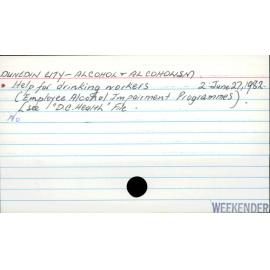 DUNEDIN CITY - ALCOHOL & ALCOHOLISM
• Help for drinking workers - 2 June 27, 1982
(Employee Alcohol Impairment Programmes).
(see "D.C. Health" F/c
No
WEEKENDER